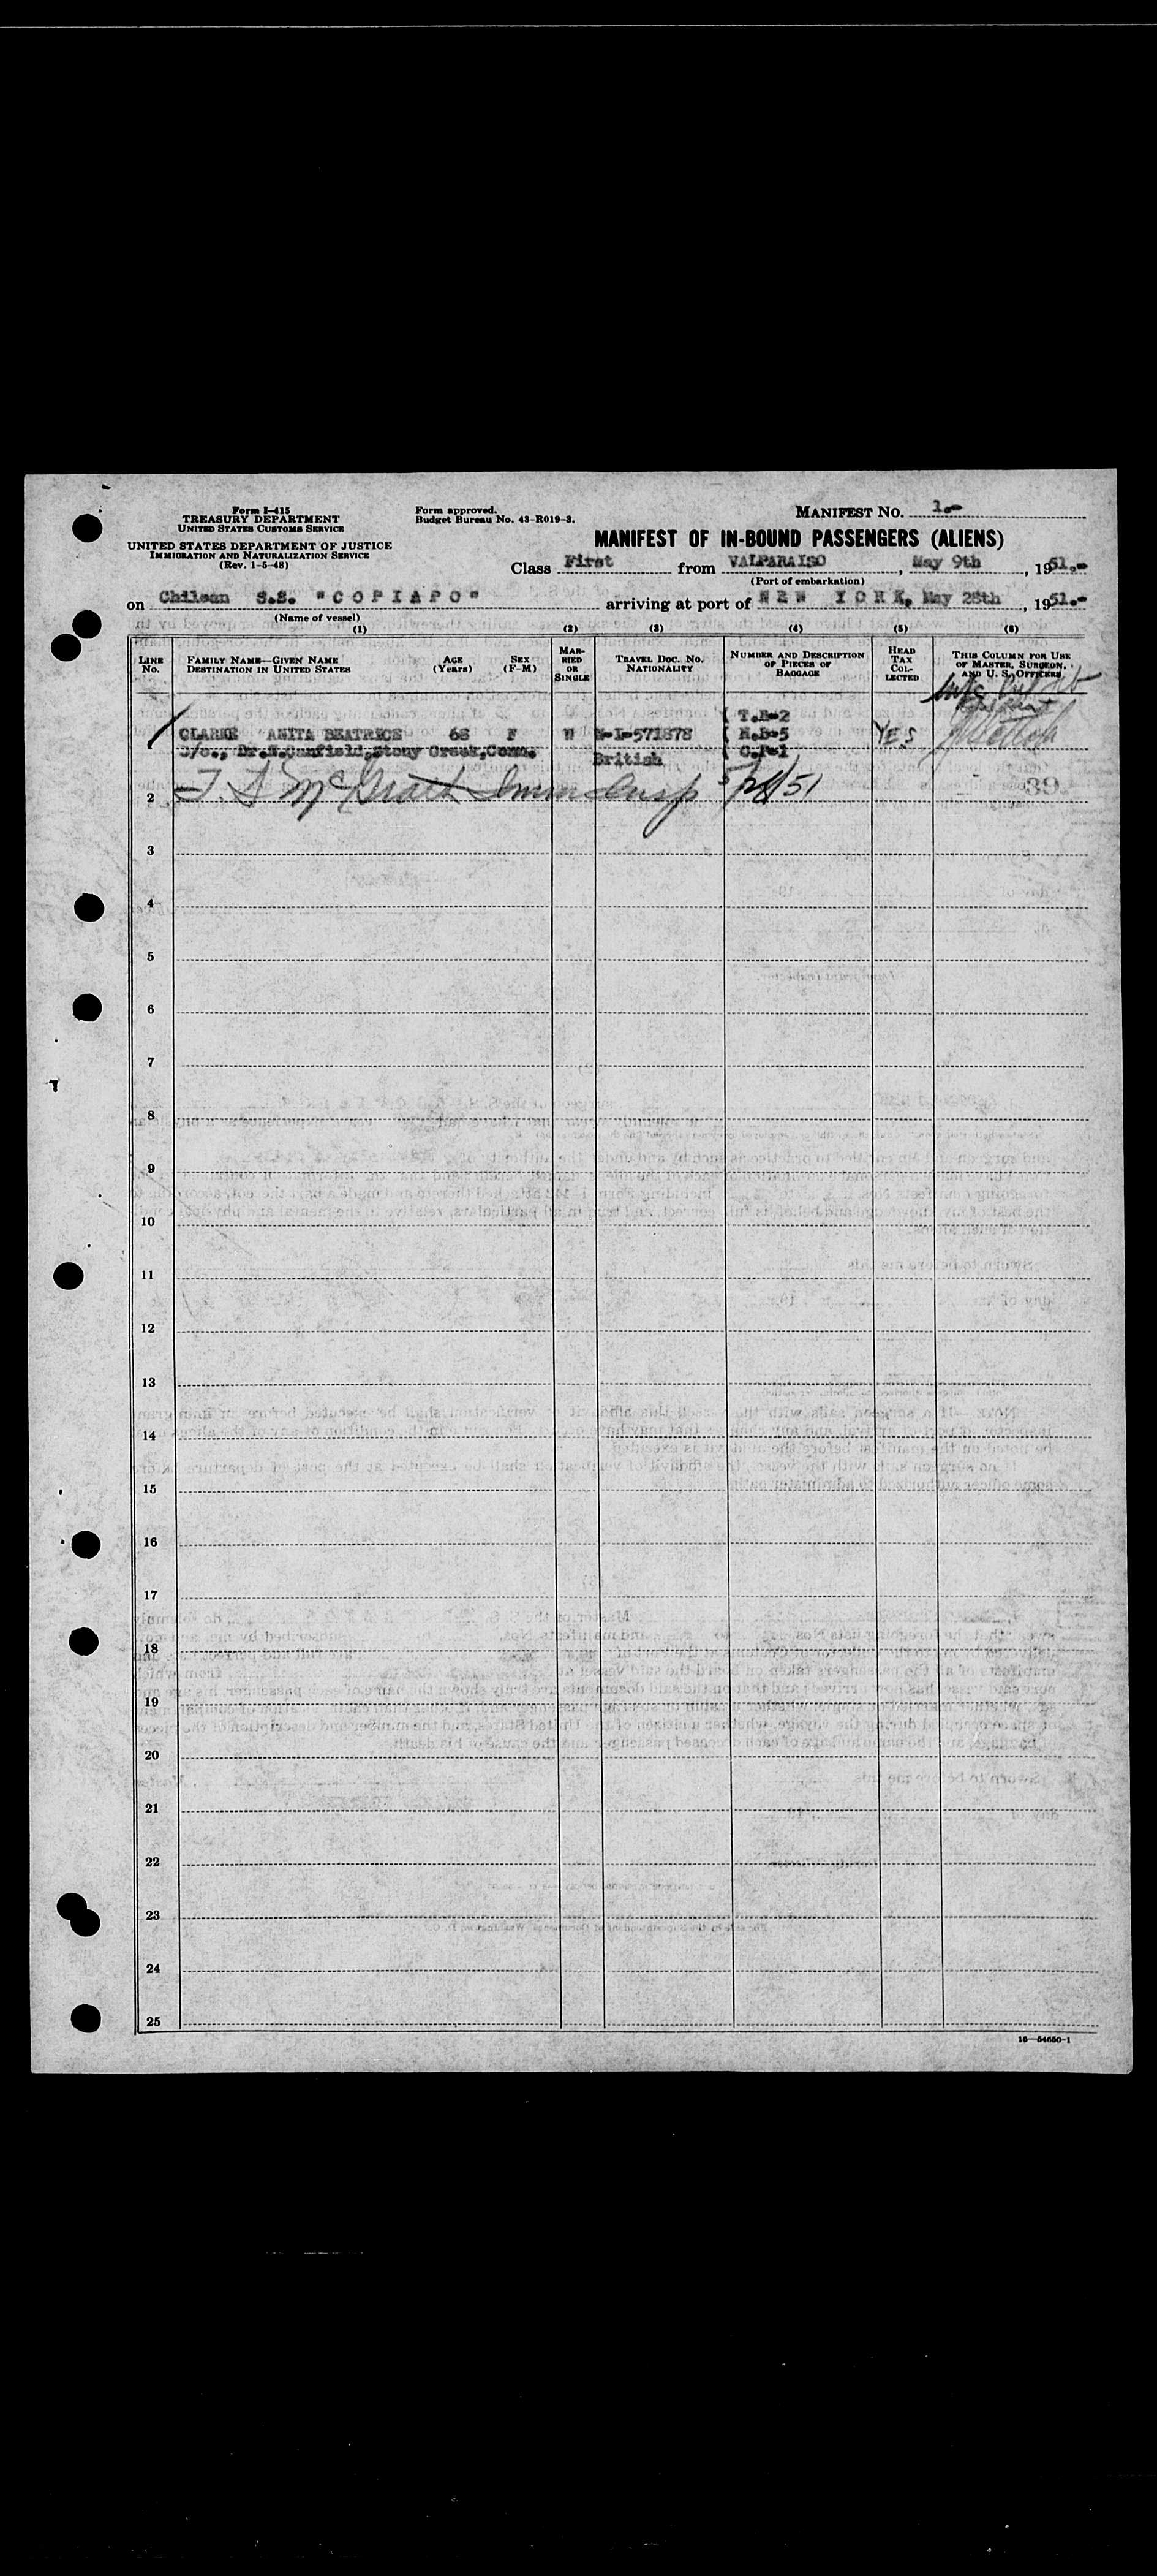 Form I-415
TREASURY DEPARTMENT
UNITED STATES CUSTOMS SERVICE
UNITED STATES DEPARTMENT OF JUSTICE
IMMIGRATION AND NATURALIZATION SERVICE
(Rev. 1-5-48)
Form approved.
Budget Bureau No. 43-R019-3.
MANIFEST NO. 1.-
MANIFEST OF IN-BOUND PASSENGERS (ALIENS)
Class First from VALPARAISO, May 9th, 1951.-
(Port of embarkation)
on Chilean S.S. "COPIAPO" arriving at port of NEW YORK, May 28th, 1951.-
(Name of vessel)
(1) (2) (3) (4) (5) (6)
LINE NO. FAMILY NAME—GIVEN NAME DESTINATION IN UNITED STATES AGE (Years) SEX (F-M) MARRIED OR SINGLE TRAVEL DOC. NO. NATIONALITY NUMBER AND DESCRIPTION OF PIECES OF BAGGAGE HEAD TAX COLLECTED THIS COLUMN FOR USE OF MASTER, SURGEON, AND U. S. OFFICERS
( T.B-2
CLARKE ANITA BEATRICE 68 F W N-I-571878 ( H.B-5 YES
C/o., Dr.N.Canfield,Stony Creek,Conn. British ( C.P-1
2 T. S McGrath Imm Insp 5/28/51 39
3
4
5
6
7
8
9
10
11
12
13
14
15
16
17
18
19
20
21
22
23
24
25
16—54650-1